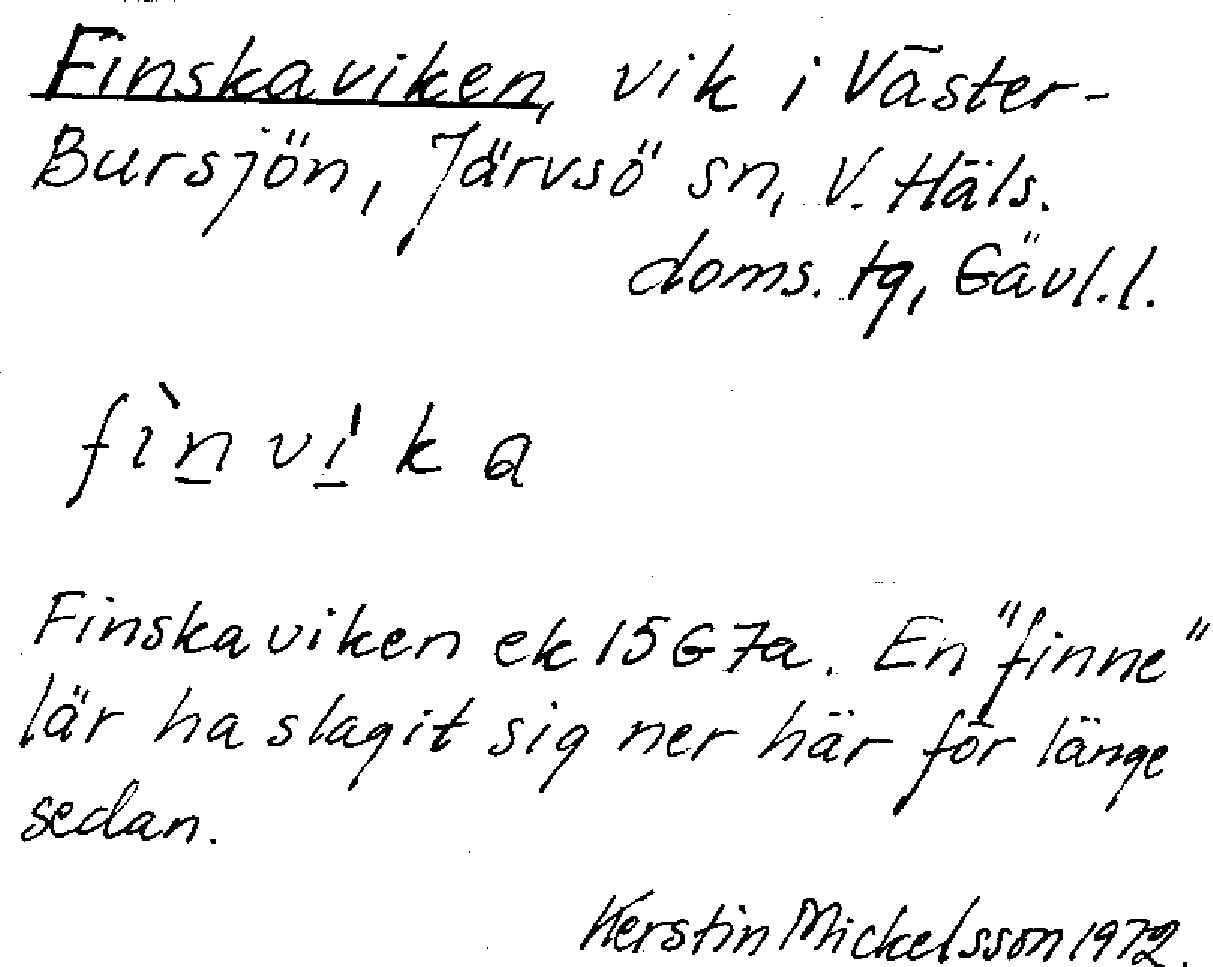 Finskaviken, vik i Väster-
Bursjön, Järvsö sn, V. Häls.
doms. tg, Gävl.l.
fìn̲ ví̲ k a
Finskaviken ek 15G7a. En "finne"
lär ha slagit sig ner här för länge
sedan.
Kerstin Mickelsson 1972.